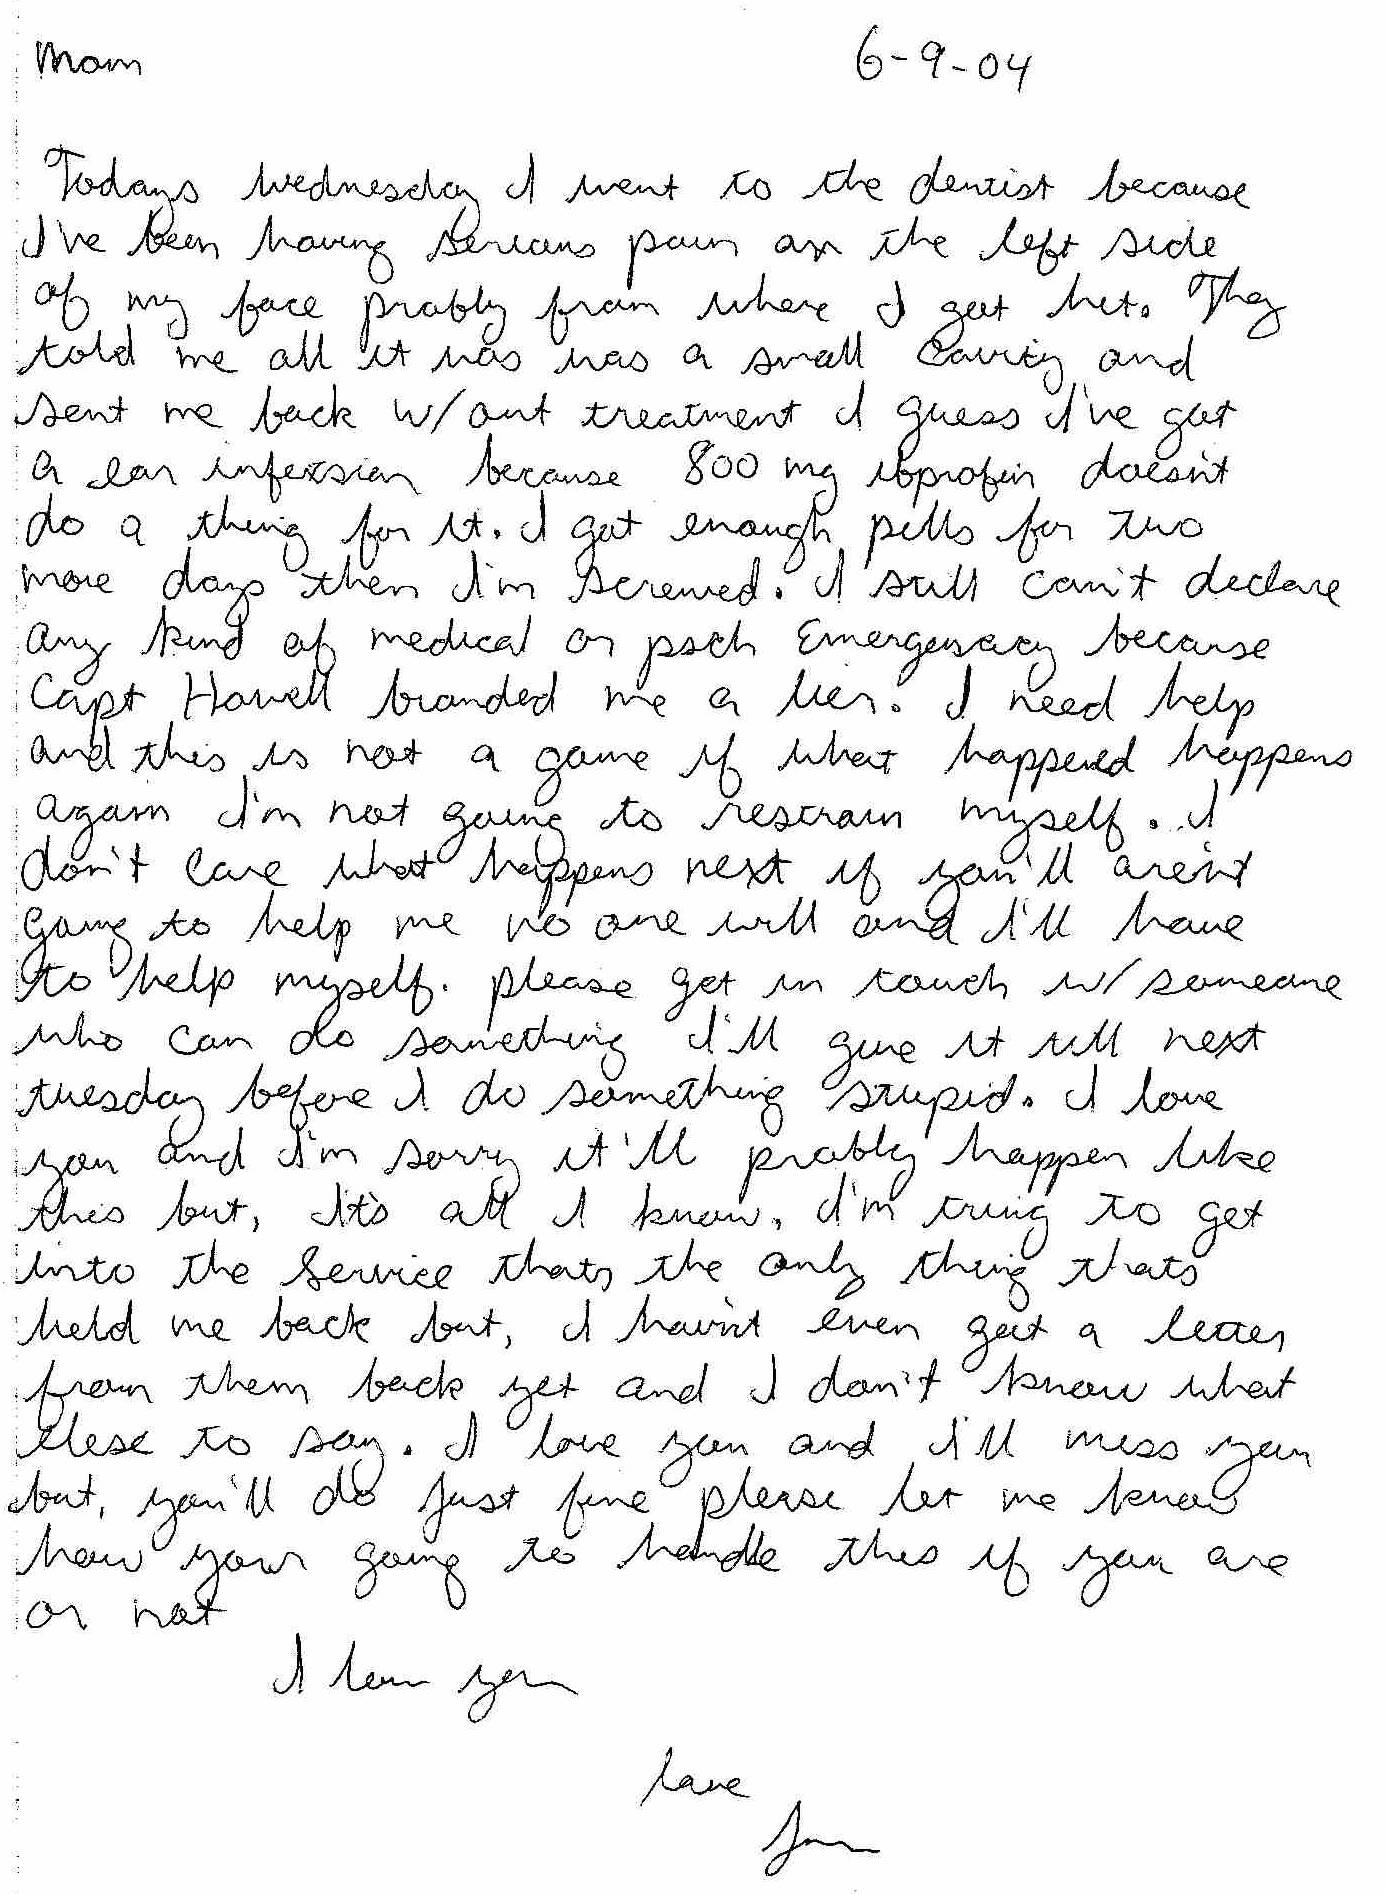 Mom 6-9-04
Todays Wednesday I went to the dentist because
I've been having serious pain on the left side
of my face probly from where I got hit. They
told me all it was was a small cavity and
sent me back w/out treatment I guess I've got
a ear infexsion because 800 mg ibprofin doesn't
do a thing for it. I got enough pills for two
more days then I'm screwed. I still can't declare
any kind of medical or psch Emergensacy because
Capt Howell branded me a lier. I need help
and this is not a game if what happened happens
again I'm not going to restrain myself. I
don't care what happens next if you'll aren't
going to help me no one will and I'll have
to help myself. please get in touch w/ someone
who can do something I'll give it till next
tuesday before I do something stupid. I love
you and I'm sorry it'll probly happen like
this but, It's all I know, I'm tring to get
into the Service thats the only thing thats
held me back but, I havn't even got a letter
from them back yet and I don't know what
elese to say. I love you and I'll miss you
but, you'll do just fine please let me know
how your going to handle this if you are
or not
I love you
love